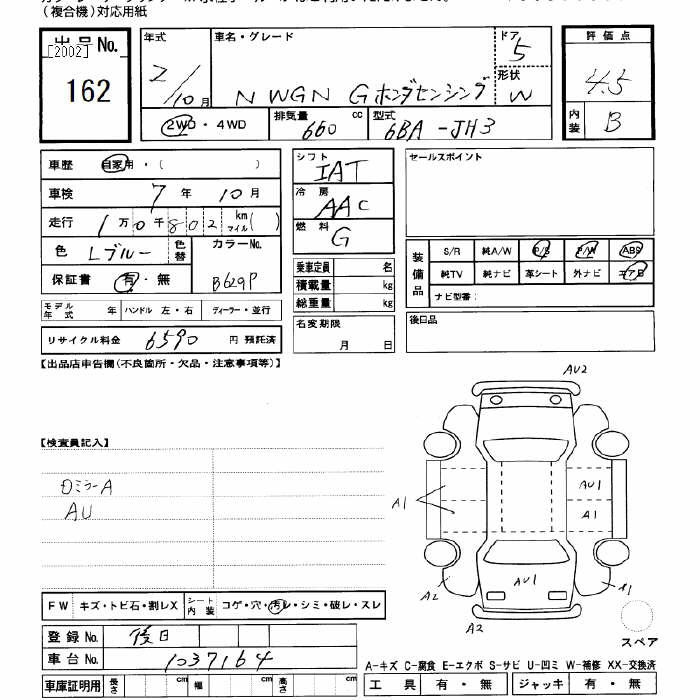 (複合機)対応用紙
出品No.
[2002]
162
年式
2/10月
車名・グレード
N WGN G ホンダセンシング
ドア
5
形状
W
評価点
4.5
内装
B
2WD・4WD
排気量
660 cc
型式
6BA-JH3
車歴 自家用・( )
車検 7年10月
走行 1万0千802 km マイル( )
色 Lブルー
色替
カラーNo.
B629P
保証書 有・無
モデル年式 年 ハンドル 左・右 ディーラー・並行
リサイクル料金 6590 円 預託済
シフト
IAT
冷房
AAC
燃料
G
乗車定員 名
積載量 kg
総重量 kg
名変期限
月 日
セールスポイント
装備品
S/R 純A/W P/S P/W ABS
純TV 純ナビ 革シート 外ナビ エアB
ナビ型番:
後日品
【出品店申告欄(不良箇所・欠品・注意事項等)】
【検査員記入】
Dミラー A
AU
AU2
A1
AU1
A1
AU1
A2
A1
A2
スペア
FW キズ・トビ石・割レX シート内装 コゲ・穴・汚レ・シミ・破レ・スレ
登録No. 後日
車台No. 1037164
車庫証明用 長さ cm 幅 cm 高さ cm
A-キズ C-腐食 E-エクボ S-サビ U-凹ミ W-補修 XX-交換済
工具 有・無 ジャッキ 有・無